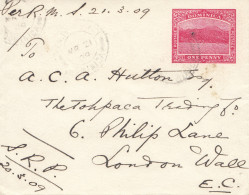 Per R. M. S. 21.3.09
DOMINICA
ONE PENNY
To
A. C. A. Hutton Esq.
The Tohpaca Trading Co.
6. Philip Lane
London Wall
E.C.
S.R.P
20.3.09